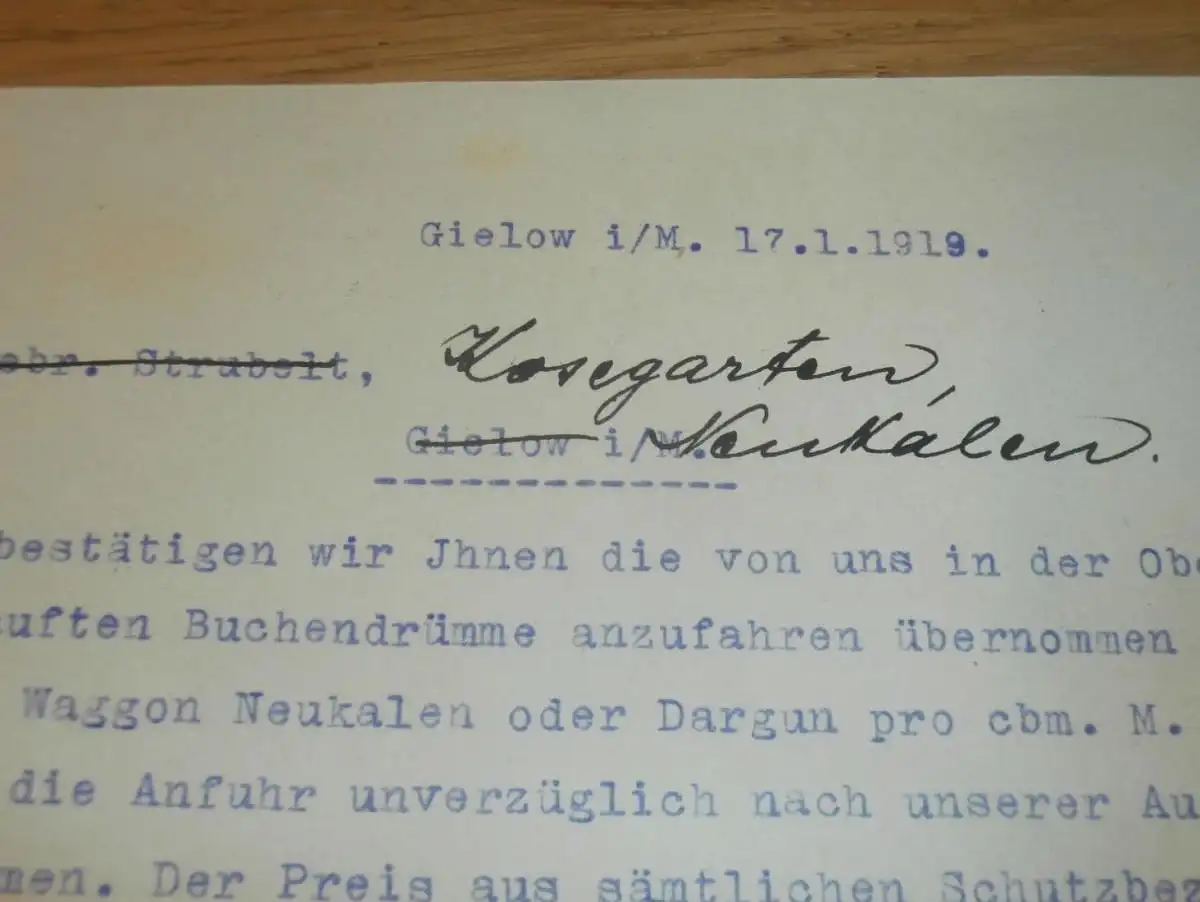 Gielow i/M. 17.1.1919.
ebr. Strubelt, Kosegarten,
Gielow i/M. Neukalen.
bestätigen wir Jhnen die von uns in der Obe
uften Buchendrümme anzufahren übernommen
Waggon Neukalen oder Dargun pro cbm. M.
die Anfuhr unverzüglich nach unserer Au
men. Der Preis aus sämtlichen Schutzbez